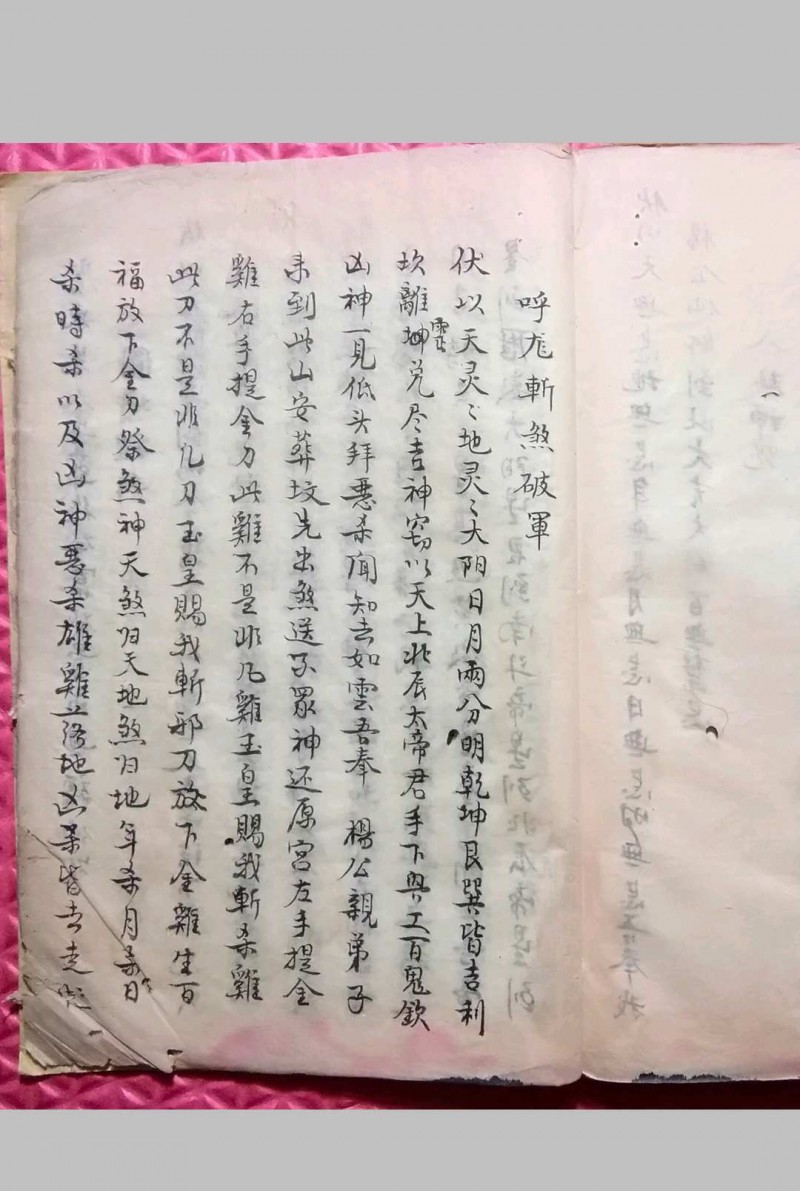 呼龙斬煞破軍
伏以天灵〻地灵〻大阴日月兩分明乾坤艮巽皆吉利
坎離坤兑尽吉神窃以天上北辰太帝君手下兴工百鬼欽
靈
凶神一見低头拜惡杀闻知去如雲吾奉 楊公親弟子
来到此山安葬坟先出煞送了眾神还原宮左手提金
雞右手提金刀此雞不是非凡雞玉皇賜我斬杀雞
此刀不是非凡刀玉皇賜我斬邪刀放下金雞生百
福放下金刀祭煞神天煞归天地煞归地年杀月杀日
杀時杀以及凶神惡杀雄雞一落地凶杀皆去走